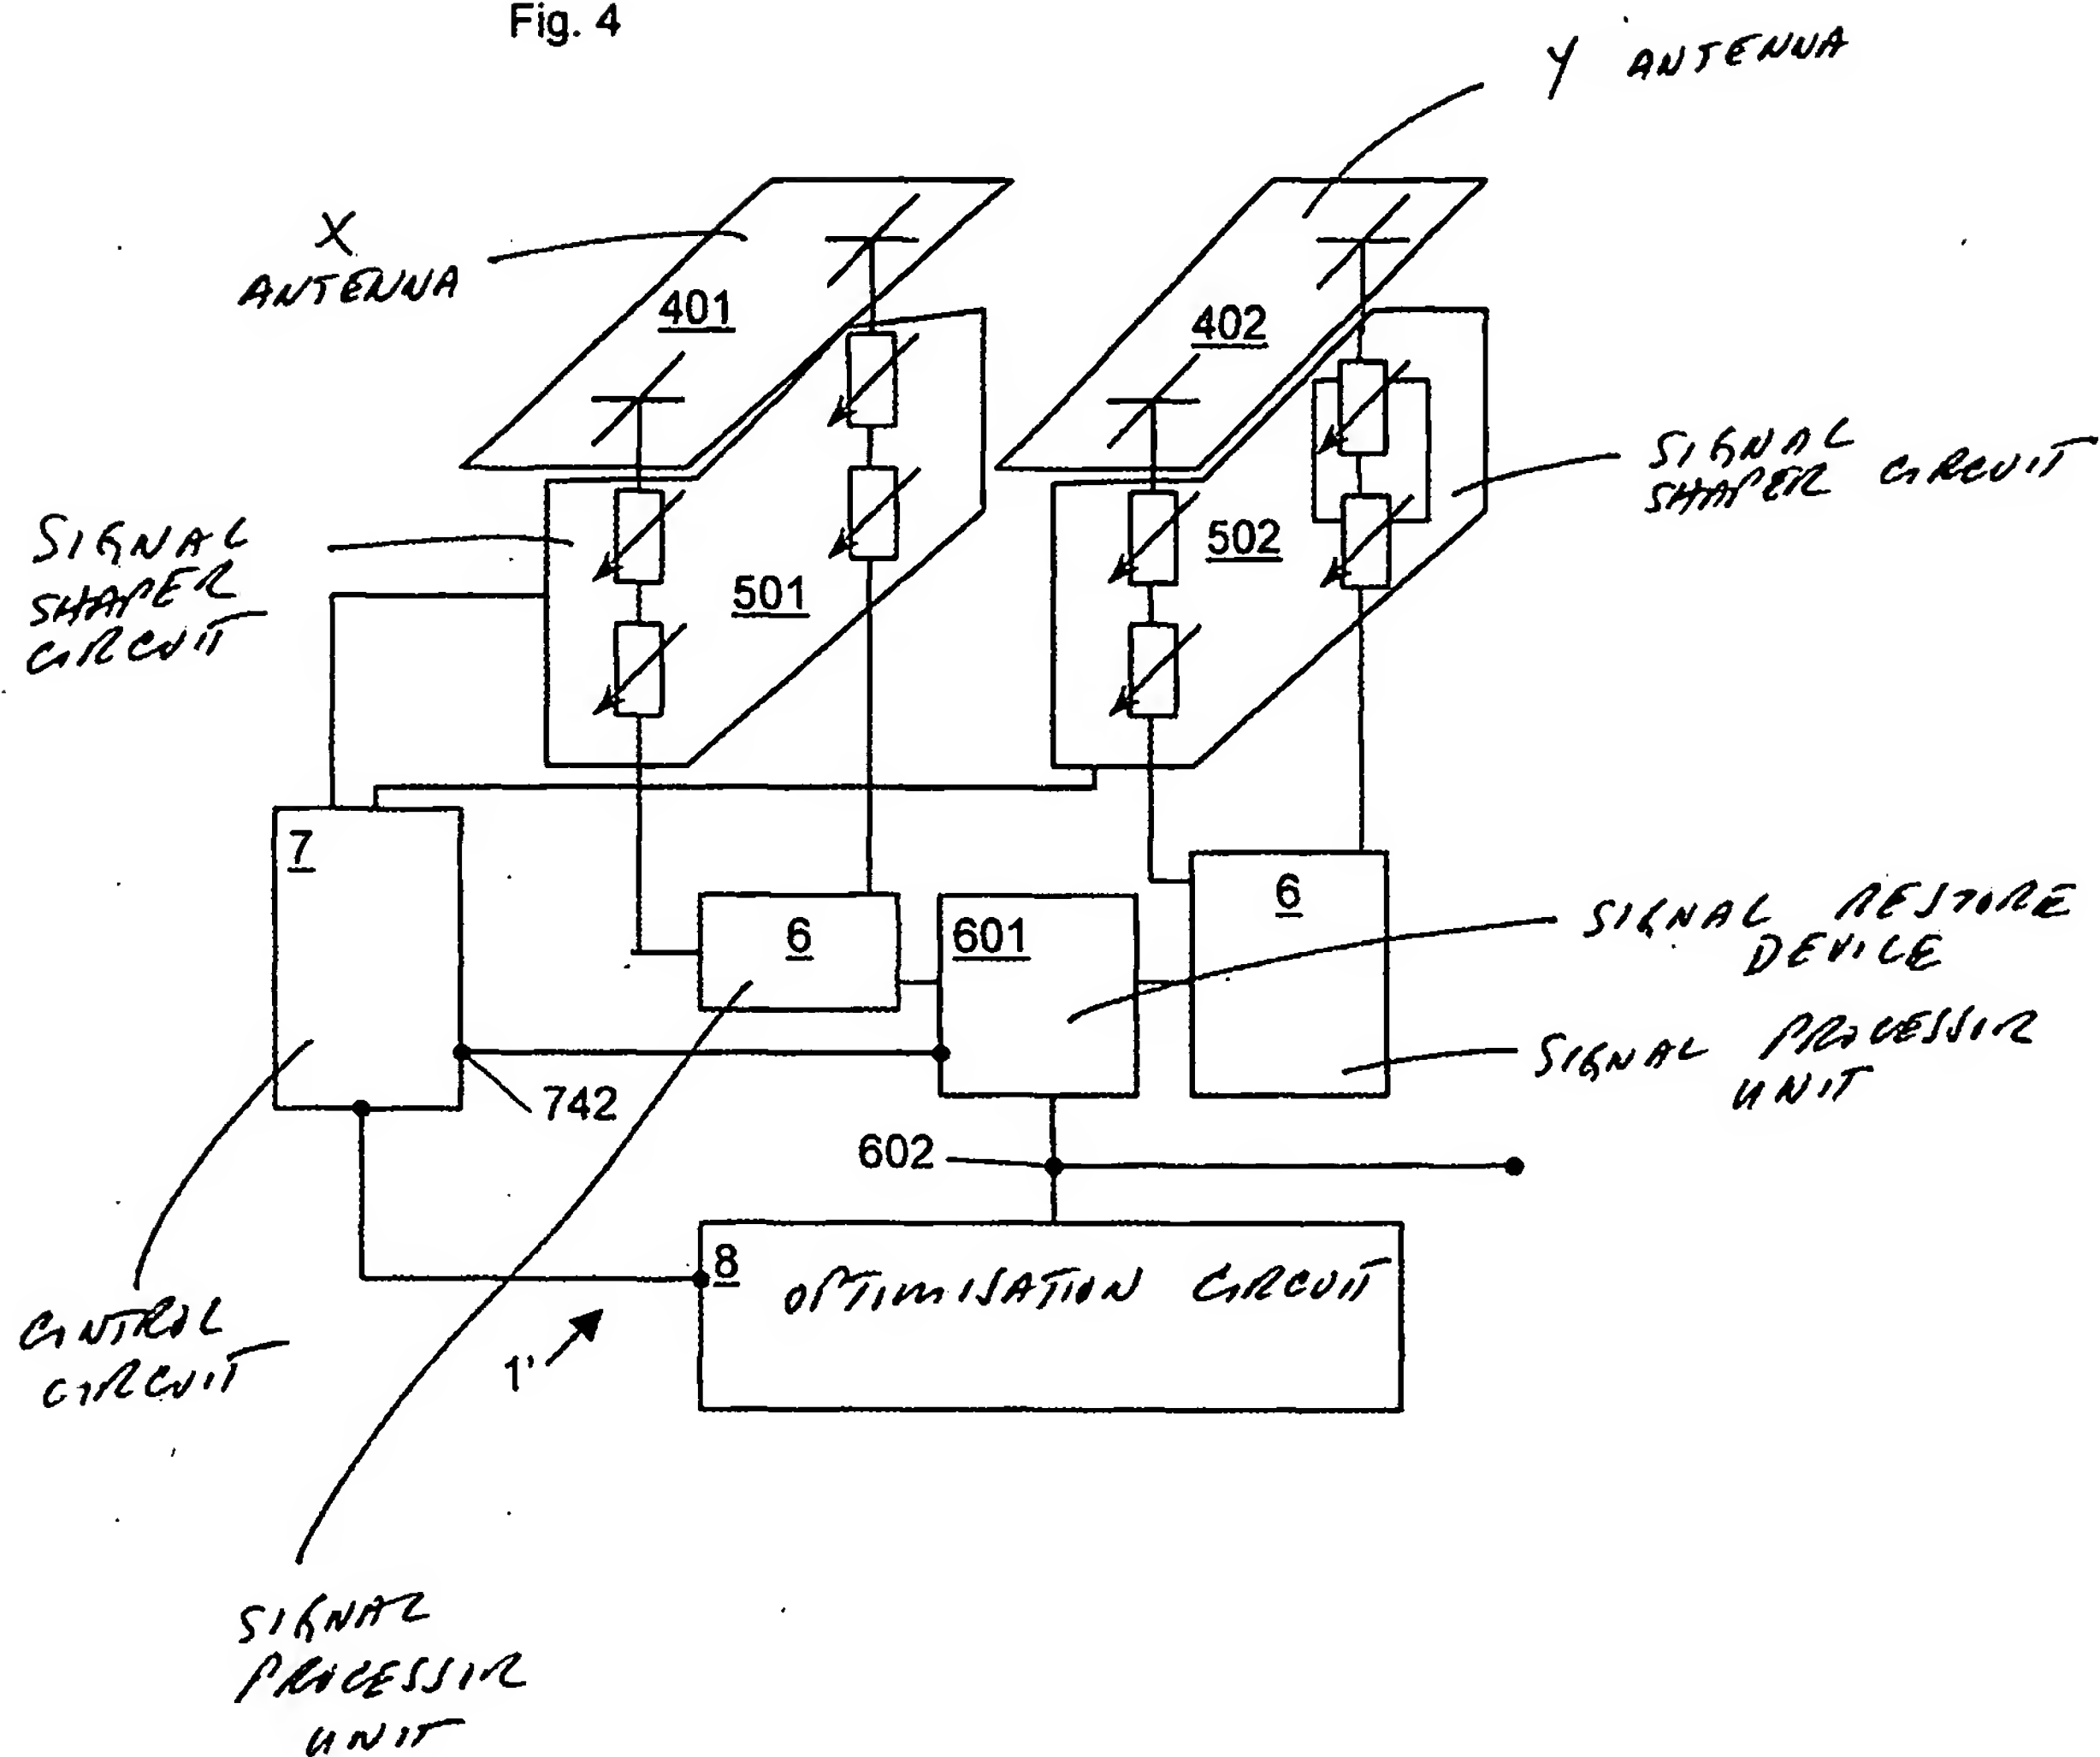 Fig. 4
Y ANTENNA
X
ANTENNA
401
402
SIGNAL
SHAPER CIRCUIT
SIGNAL
SHAPER
CIRCUIT
501
502
7
6
6
601
SIGNAL RESTORE
DEVICE
SIGNAL PROCESSOR
UNIT
742
602
8
OPTIMISATION CIRCUIT
CONTROL
CIRCUIT
1'
SIGNAL
PROCESSOR
UNIT